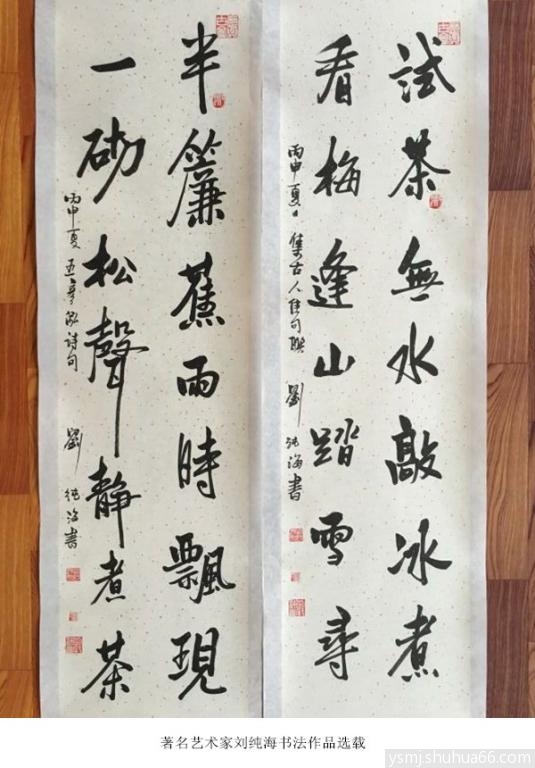 試茶無水敲冰煮
看梅逢山踏雪尋
丙申夏日集古人佳句联
劉纯海書
半簾蕉雨時飄現
一砌松聲靜煮茶
丙申夏
詩句
劉纯海書
著名艺术家刘纯海书法作品选载
ysmj.shuhua66.com